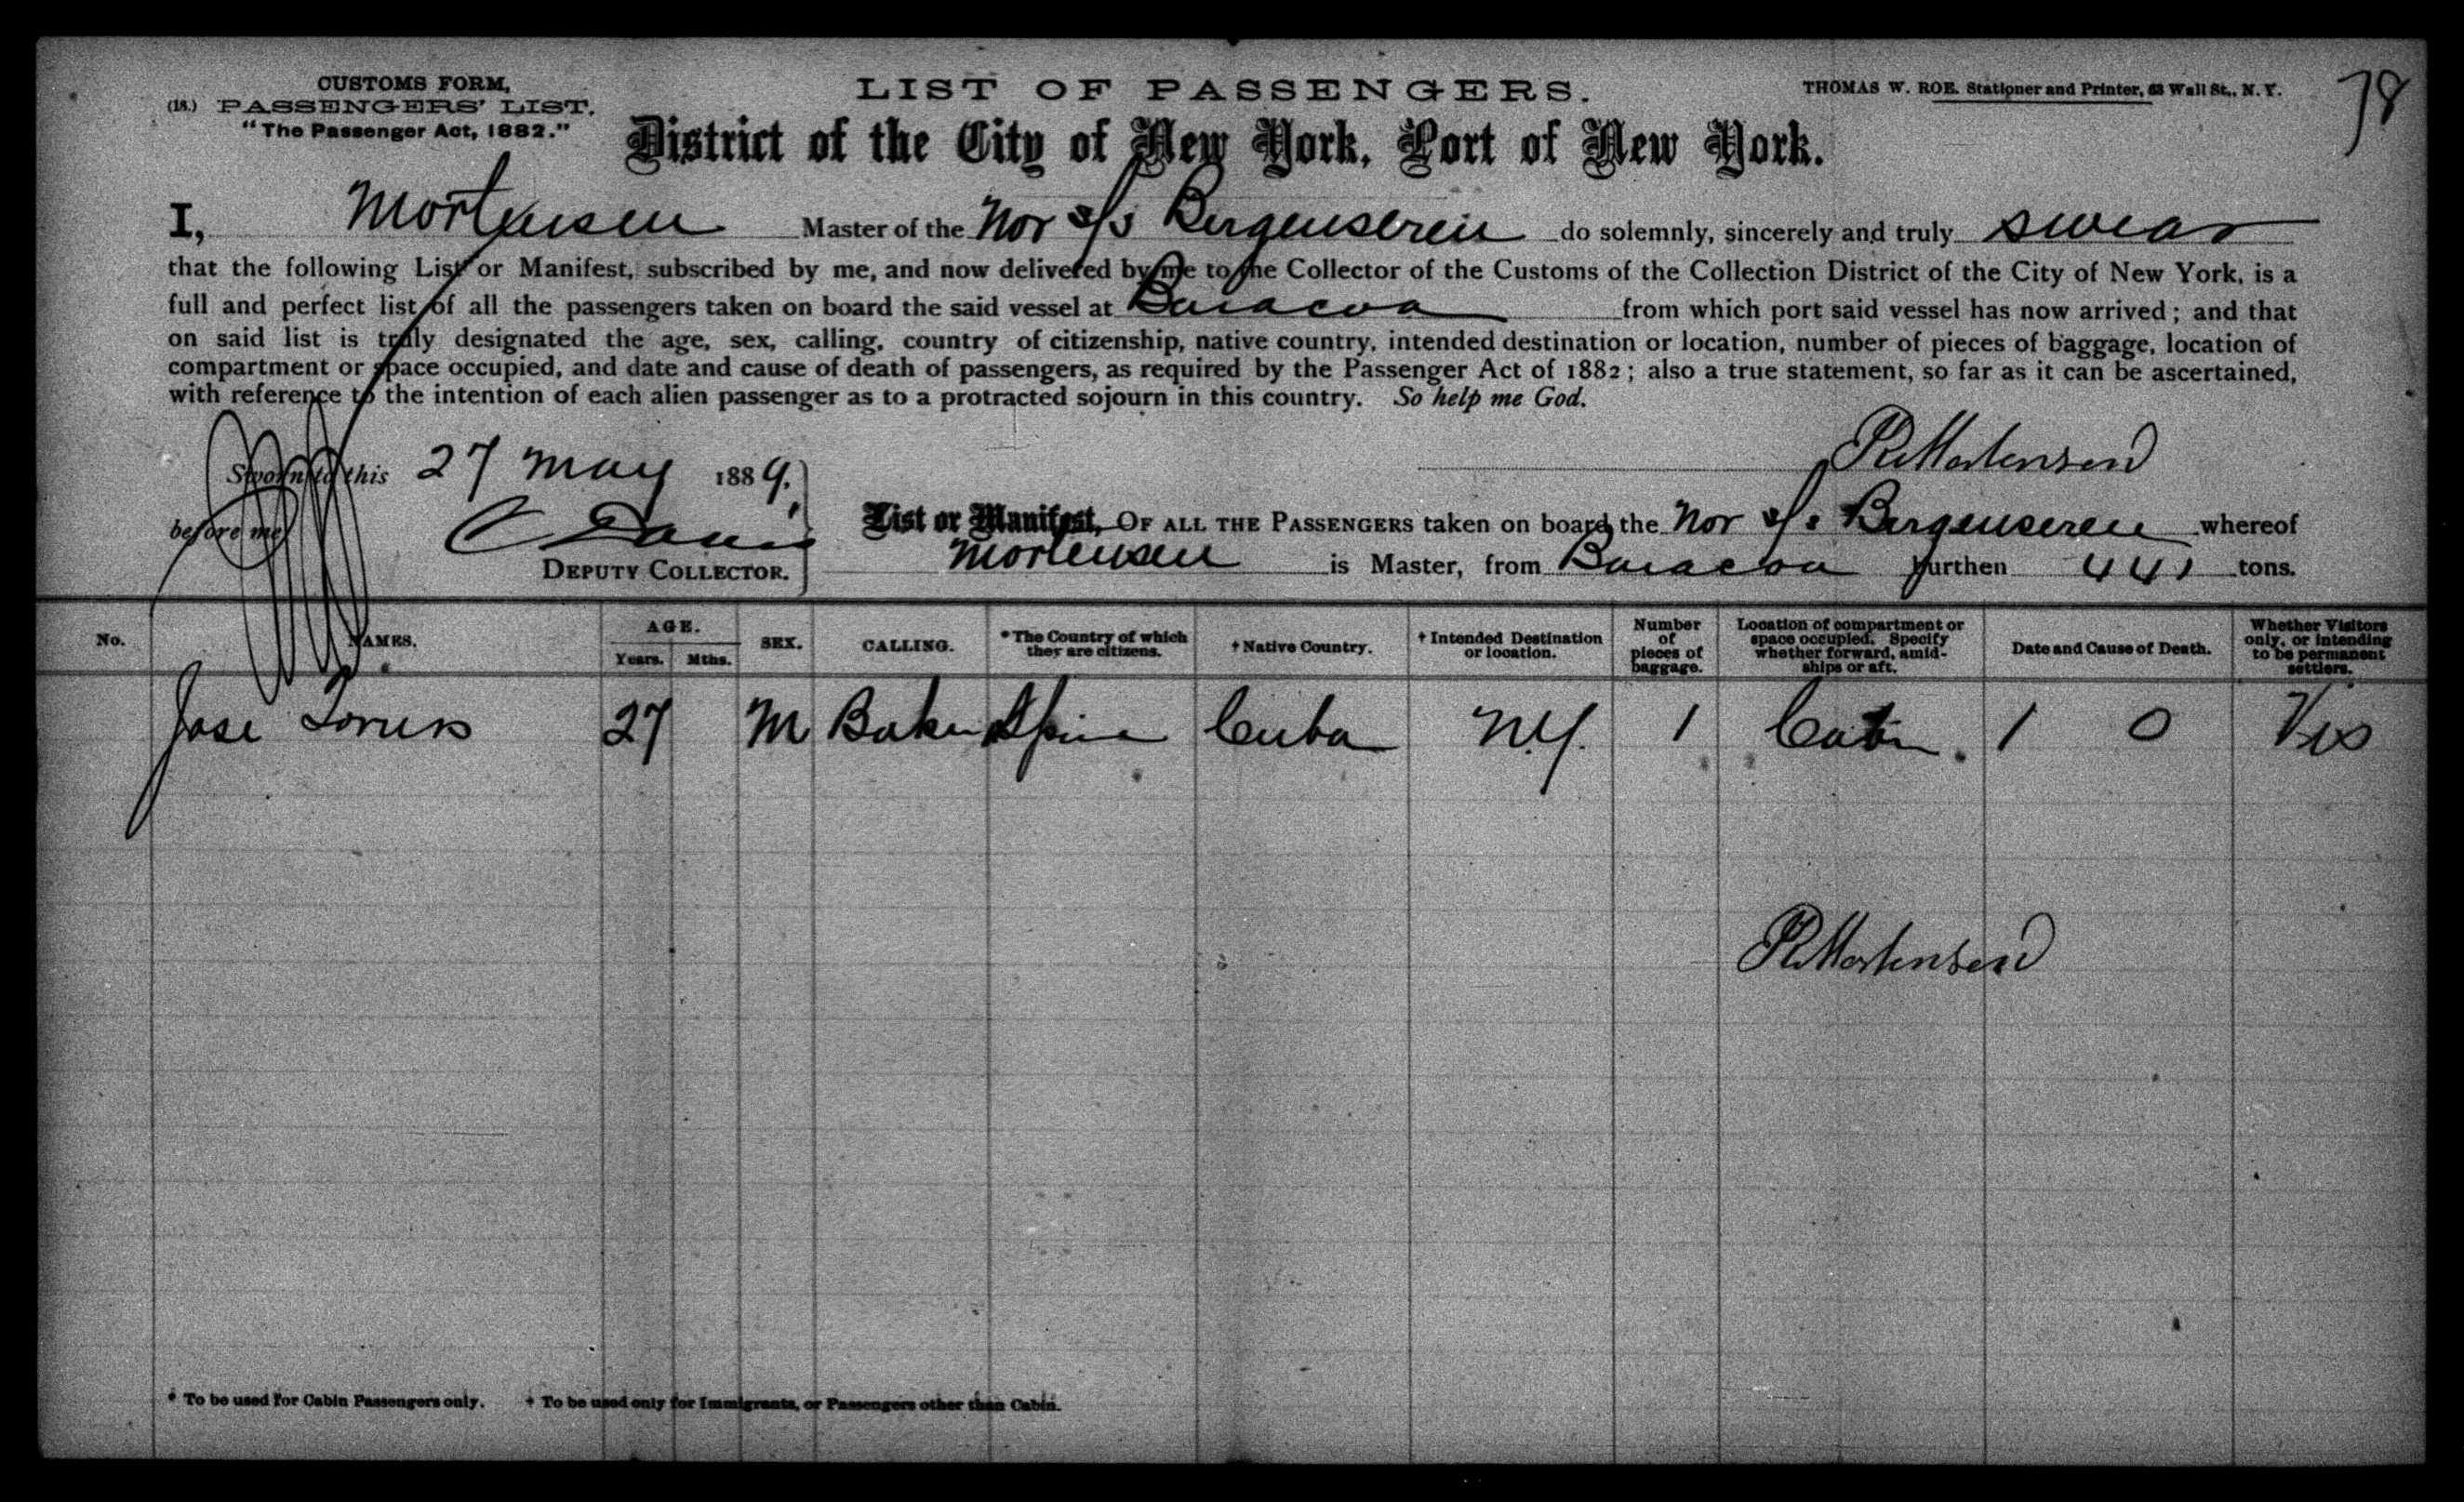 CUSTOMS FORM,
(18.) PASSENGERS' LIST.
"The Passenger Act, 1882."
LIST OF PASSENGERS.
THOMAS W. ROE. Stationer and Printer, 63 Wall St., N. Y.
78
District of the City of New York, Port of New York.
I, Mortensen Master of the Nor s/s Bergenseren do solemnly, sincerely and truly swear
that the following List or Manifest, subscribed by me, and now delivered by me to the Collector of the Customs of the Collection District of the City of New York, is a
full and perfect list of all the passengers taken on board the said vessel at Baracoa from which port said vessel has now arrived; and that
on said list is truly designated the age, sex, calling, country of citizenship, native country, intended destination or location, number of pieces of baggage, location of
compartment or space occupied, and date and cause of death of passengers, as required by the Passenger Act of 1882; also a true statement, so far as it can be ascertained,
with reference to the intention of each alien passenger as to a protracted sojourn in this country. So help me God.
R Mortensen
Sworn to this 27 May 1889.
before me
C Davis
DEPUTY COLLECTOR.
List or Manifest, OF ALL THE PASSENGERS taken on board the Nor s/s Bergenseren whereof
Mortensen is Master, from Baracoa burthen 441 tons.
No. NAMES. AGE. Years. Mths. SEX. CALLING. *The Country of which they are citizens. †Native Country. †Intended Destination or location. Number of pieces of baggage. Location of compartment or space occupied. Specify whether forward, amidships or aft. Date and Cause of Death. Whether Visitors only, or intending to be permanent settlers.
Jose 27 M Baker Cuba N.Y. 1 Cabin 1 0 Vis
R Mortensen
* To be used for Cabin Passengers only. † To be used only for Immigrants, or Passengers other than Cabin.